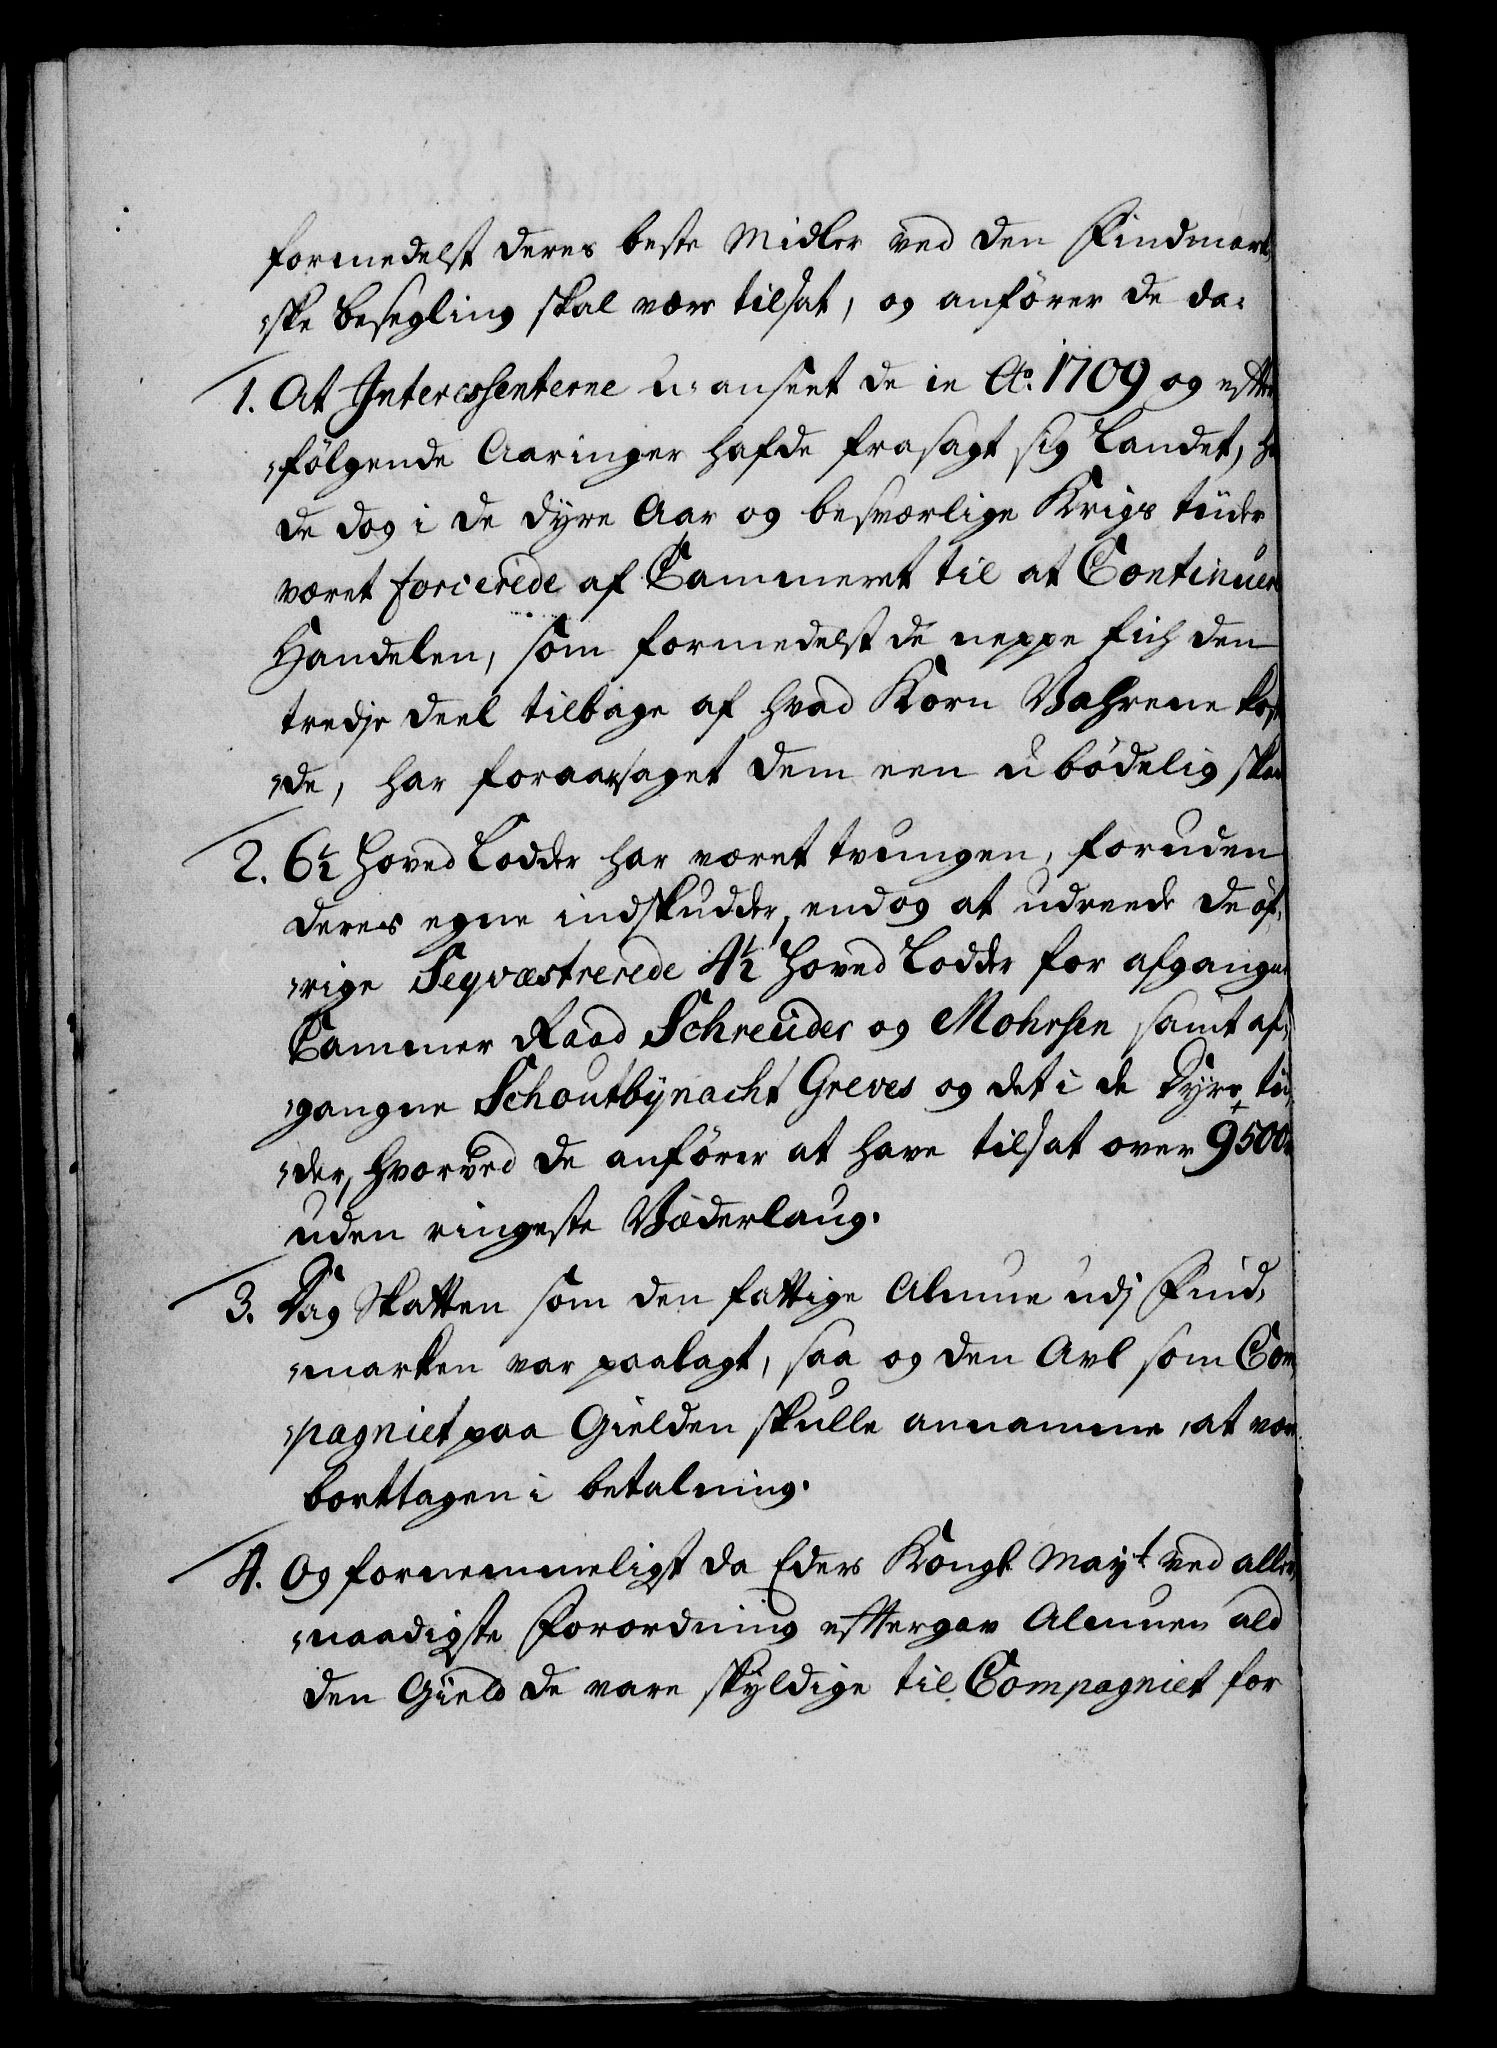 formedelst deres beste Midler ved den Findmark
ske Besegling skal være tilsat, og anfører de da:
1. At Interessenterne u-anseet de in Ao. 1709 og efter
følgende Aaringer hafde frasagt sig Landet, ha
de dog i de dyre Aar og besværlige Krigs tiider
været forcerede af Cammeret til at Continuere
Handelen, som formedelst de neppe fich den
tredje deel tilbage af hvad Korn Vahrene kost
de, har foraarsaget dem een ubodelig skad
2. 6½ Hoved Lodder har været tvungen, foruden
deres egne indskudder, endog at udreede de øf
rige Seqvæstrerede 4½ Hoved Lodder for afgangne
Cammer Raad Schreüder og Mohrsen samt af
gangne Schoutbynacht Greves og det i de Dyre tii
der, hvorved de anfører at have tilsat over 9500
uden ringeste Væderlaug.
3. Tag Skatten som den fattige Almue udj Find
marken var paalagt, saa og den Avl som Com
pagniet paa Gielden skulle annamme, at vær
borttagen i betalning.
4. Og fornemmeligst da Eders Kongl Mayt ved aller
naadigste Forordning eftergav Almuen ald
den Gield de vare skyldige til Compagniet for